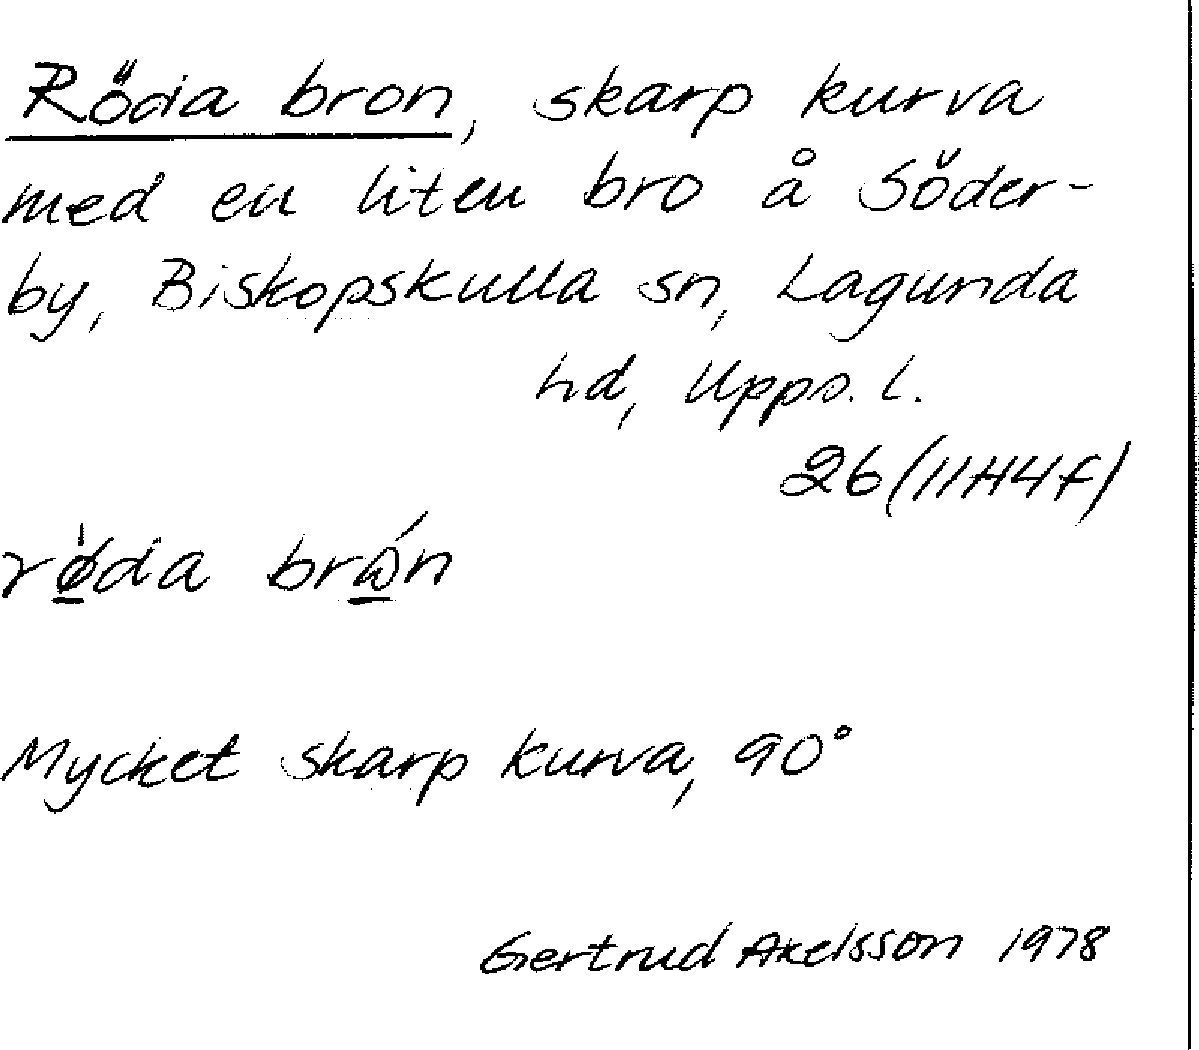 Röda bron, skarp kurva
med en liten bro å Söder-
by, Biskopskulla sn, Lagunda
hd, Upps. l.
26 (11H4f)
rø̀da brón
Mycket skarp kurva, 90°
Gertrud Axelsson 1978